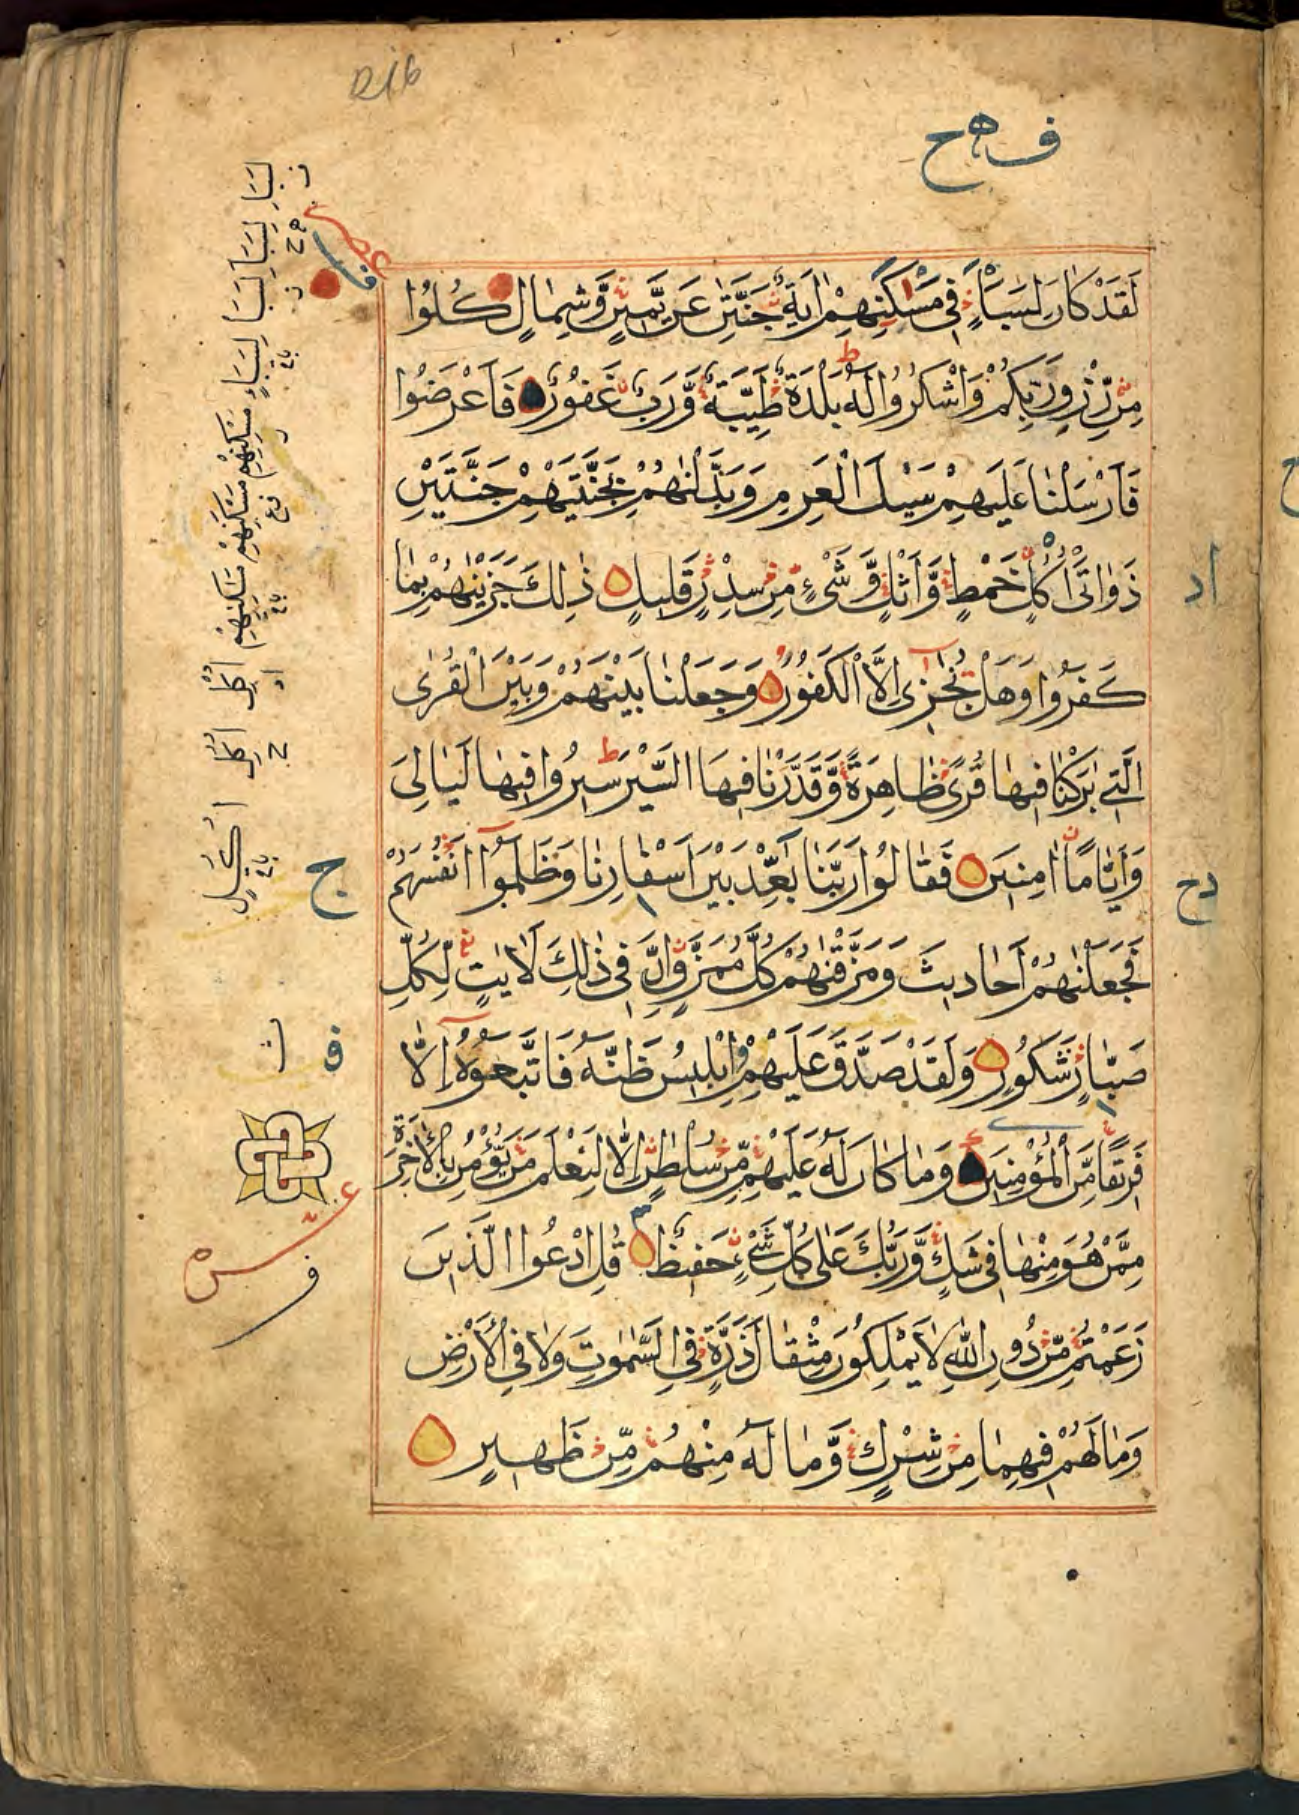 ف ه ح
لَقَدْ كَانَ لِسَبَإٍ فِي مَسْكَنِهِمْ اٰيَةٌ جَنَّتٰنِ عَنْ يَّمِيْنٍ وَّشِمَالٍ كُلُوْا
مِنْ رِّزْقِ رَبِّكُمْ وَاشْكُرُوْا لَهٗ بَلْدَةٌ طَيِّبَةٌ وَّرَبٌّ غَفُوْرٌ فَاَعْرَضُوْا
فَاَرْسَلْنَا عَلَيْهِمْ سَيْلَ الْعَرِمِ وَبَدَّلْنٰهُمْ بِجَنَّتَيْهِمْ جَنَّتَيْنِ
ذَوَاتَيْ اُكُلٍ خَمْطٍ وَّاَثْلٍ وَّشَيْءٍ مِّنْ سِدْرٍ قَلِيْلٍ ذٰلِكَ جَزَيْنٰهُمْ بِمَا
كَفَرُوْا وَهَلْ نُجٰزِيْ اِلَّا الْكَفُوْرَ وَجَعَلْنَا بَيْنَهُمْ وَبَيْنَ الْقُرَى
الَّتِيْ بٰرَكْنَا فِيْهَا قُرًى ظَاهِرَةً وَّقَدَّرْنَا فِيْهَا السَّيْرَ سِيْرُوْا فِيْهَا لَيَالِيَ
وَاَيَّامًا اٰمِنِيْنَ فَقَالُوْا رَبَّنَا بٰعِدْ بَيْنَ اَسْفَارِنَا وَظَلَمُوْٓا اَنْفُسَهُمْ
فَجَعَلْنٰهُمْ اَحَادِيْثَ وَمَزَّقْنٰهُمْ كُلَّ مُمَزَّقٍ اِنَّ فِيْ ذٰلِكَ لَاٰيٰتٍ لِّكُلِّ
صَبَّارٍ شَكُوْرٍ وَلَقَدْ صَدَّقَ عَلَيْهِمْ اِبْلِيْسُ ظَنَّهٗ فَاتَّبَعُوْهُ اِلَّا
فَرِيْقًا مِّنَ الْمُؤْمِنِيْنَ وَمَا كَانَ لَهٗ عَلَيْهِمْ مِّنْ سُلْطٰنٍ اِلَّا لِنَعْلَمَ مَنْ يُّؤْمِنُ بِالْاٰخِرَةِ
مِمَّنْ هُوَ مِنْهَا فِيْ شَكٍّ وَّرَبُّكَ عَلٰى كُلِّ شَيْءٍ حَفِيْظٌ قُلِ ادْعُوا الَّذِيْنَ
زَعَمْتُمْ مِّنْ دُوْنِ اللّٰهِ لَا يَمْلِكُوْنَ مِثْقَالَ ذَرَّةٍ فِي السَّمٰوٰتِ وَلَا فِي الْاَرْضِ
وَمَا لَهُمْ فِيْهِمَا مِنْ شِرْكٍ وَّمَا لَهٗ مِنْهُمْ مِّنْ ظَهِيْرٍ
اد
دح
ج
ف
عشر
ف